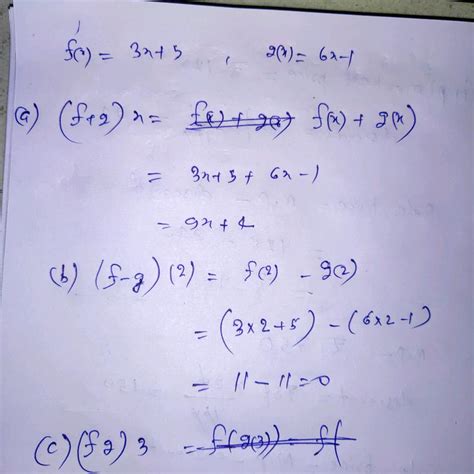 f(x) = 3x+5 , g(x) = 6x-1
(a) (f+g) x = f(x) + g(x) f(x) + g(x)
= 3x+5 + 6x-1
= 9x+4
(b) (f-g) (2) = f(2) - g(2)
= (3×2+5) - (6×2-1)
= 11 - 11 = 0
(c) (fg) 3 = f(g(3)) = f(